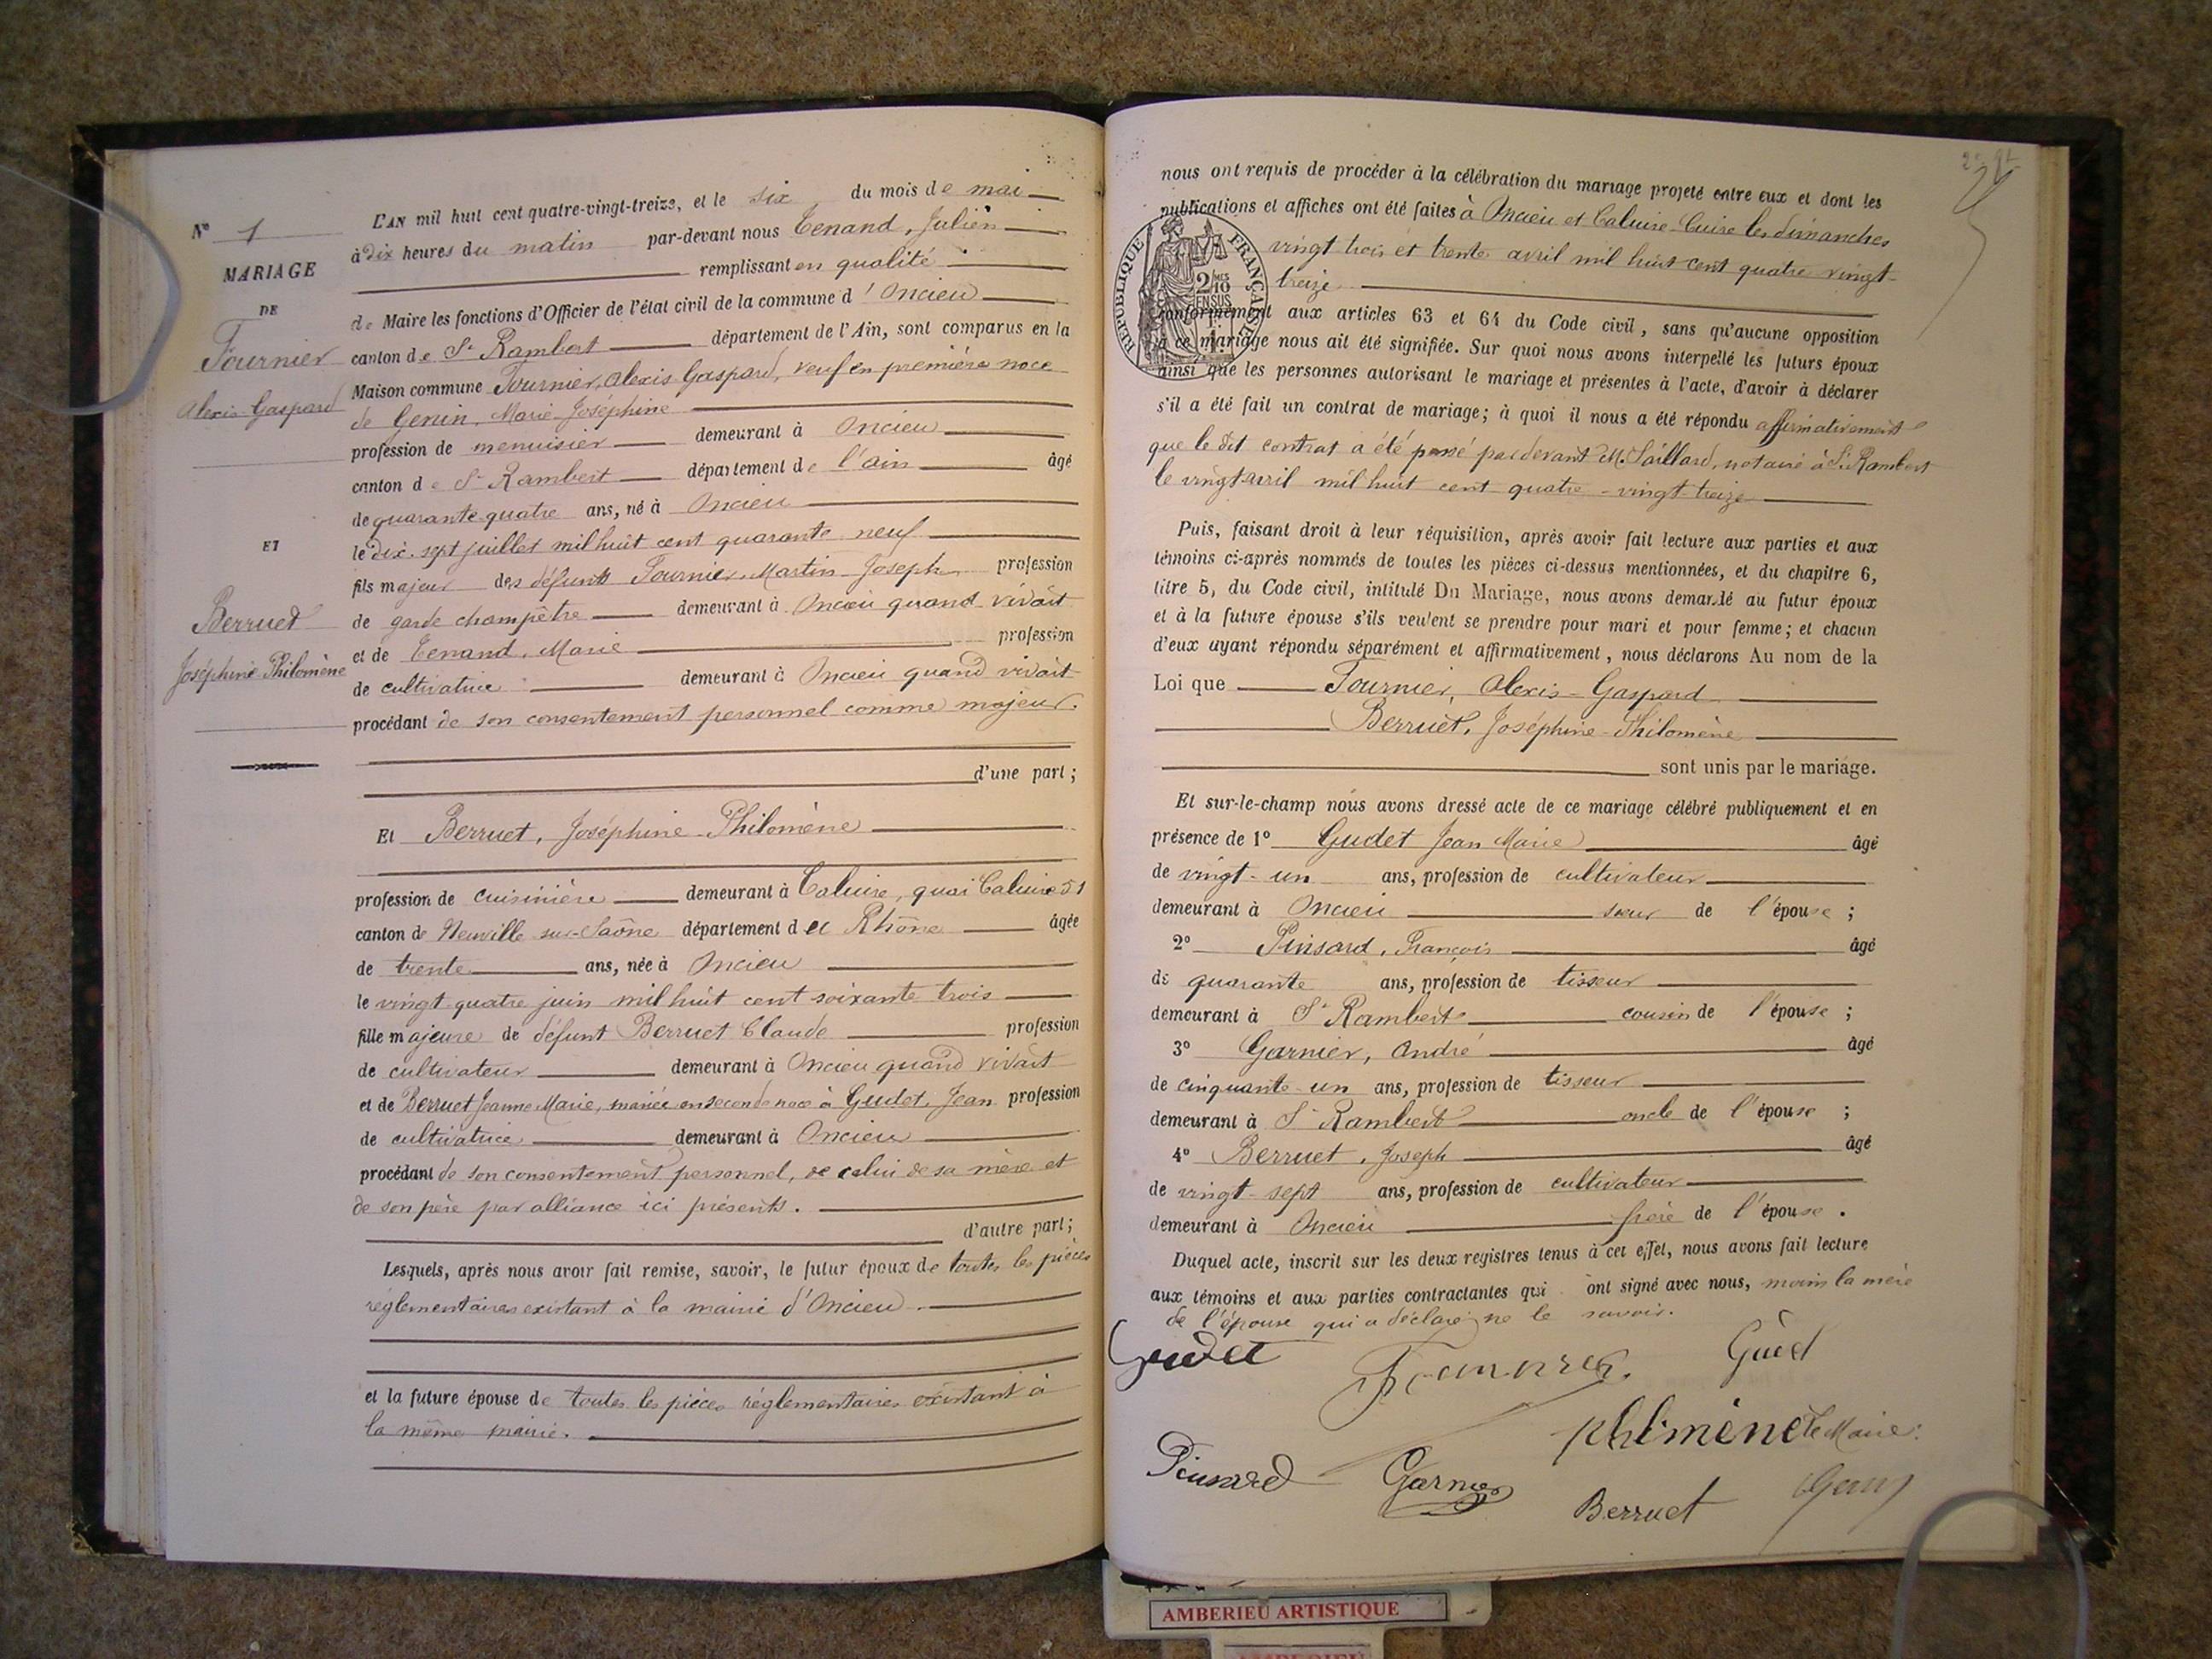 N° 1
MARIAGE
DE
Fournier
Alexis Gaspard
ET
Berruet
Joséphine Philomène
L'AN mil huit cent quatre-vingt-treize, et le six du mois de mai
à dix heures du matin par-devant nous Tenand, Julien
remplissant en qualité
de Maire les fonctions d'Officier de l'état civil de la commune d'Oncieu
canton de St Rambert département de l'Ain, sont comparus en la
Maison commune Fournier, Alexis Gaspard, veuf en première noce
de Genin, Marie Joséphine
profession de menuisier demeurant à Oncieu
canton de St Rambert département de l'ain âgé
de quarante-quatre ans, né à Oncieu
le dix-sept juillet mil huit cent quarante neuf
fils majeur des défunts Fournier, Martin Joseph profession
de garde champêtre demeurant à Oncieu quand vivait
et de Tenand, Marie profession
de cultivatrice demeurant à Oncieu quand vivait
procédant de son consentement personnel comme majeur.
d'une part;
Et Berruet, Joséphine-Philomène
profession de cuisinière demeurant à Caluire, quai Caluire 51
canton de Neuville sur-Saône département du Rhône âgée
de trente ans, née à Oncieu
le vingt quatre juin mil huit cent soixante trois
fille majeure de défunt Berruet Claude profession
de cultivateur demeurant à Oncieu quand vivait
et de Berruet Jeanne Marie, mariée en seconde noce à Gudet, Jean profession
de cultivatrice demeurant à Oncieu
procédant de son consentement personnel, de celui de sa mère et
de son père par alliance ici présents.
d'autre part;
Lesquels, après nous avoir fait remise, savoir, le futur époux de toutes les pièces
réglementaires existant à la mairie d'Oncieu.
et la future épouse de toutes les pièces réglementaires existant à
la même mairie.
nous ont requis de procéder à la célébration du mariage projeté entre eux et dont les
publications et affiches ont été faites à Oncieu et Caluire-Cuire les dimanches
vingt trois et trente avril mil huit cent quatre vingt-
treize
RÉPUBLIQUE FRANÇAISE
2/10
EN SUS
conformément aux articles 63 et 64 du Code civil, sans qu'aucune opposition
à ce mariage nous ait été signifiée. Sur quoi nous avons interpellé les futurs époux
ainsi que les personnes autorisant le mariage et présentes à l'acte, d'avoir à déclarer
s'il a été fait un contrat de mariage; à quoi il nous a été répondu affirmativement
que le dit contrat a été passé par devant M. Saillard, notaire à St Rambert
le vingt avril mil huit cent quatre-vingt-treize
Puis, faisant droit à leur réquisition, après avoir fait lecture aux parties et aux
témoins ci-après nommés de toutes les pièces ci-dessus mentionnées, et du chapitre 6,
titre 5, du Code civil, intitulé Du Mariage, nous avons demandé au futur époux
et à la future épouse s'ils veulent se prendre pour mari et pour femme; et chacun
d'eux ayant répondu séparément et affirmativement, nous déclarons Au nom de la
Loi que Fournier, Alexis-Gaspard
Berruet, Joséphine-Philomène
sont unis par le mariage.
Et sur-le-champ nous avons dressé acte de ce mariage célébré publiquement et en
présence de 1° Gudet Jean Marie âgé
de vingt-un ans, profession de cultivateur
demeurant à Oncieu de l'épouse;
2° Pinsard, François âgé
de quarante ans, profession de tisseur
demeurant à St Rambert cousin de l'épouse;
3° Garnier, André âgé
de cinquante-un ans, profession de tisseur
demeurant à St Rambert oncle de l'épouse;
4° Berruet, Joseph âgé
de vingt-sept ans, profession de cultivateur
demeurant à Oncieu frère de l'épouse.
Duquel acte, inscrit sur les deux registres tenus à cet effet, nous avons fait lecture
aux témoins et aux parties contractantes qui ont signé avec nous, moins la mère
de l'épouse qui a déclaré ne le savoir.
Gudet
Pinsard Garnier Berruet
Le Maire:
AMBERIEU ARTISTIQUE